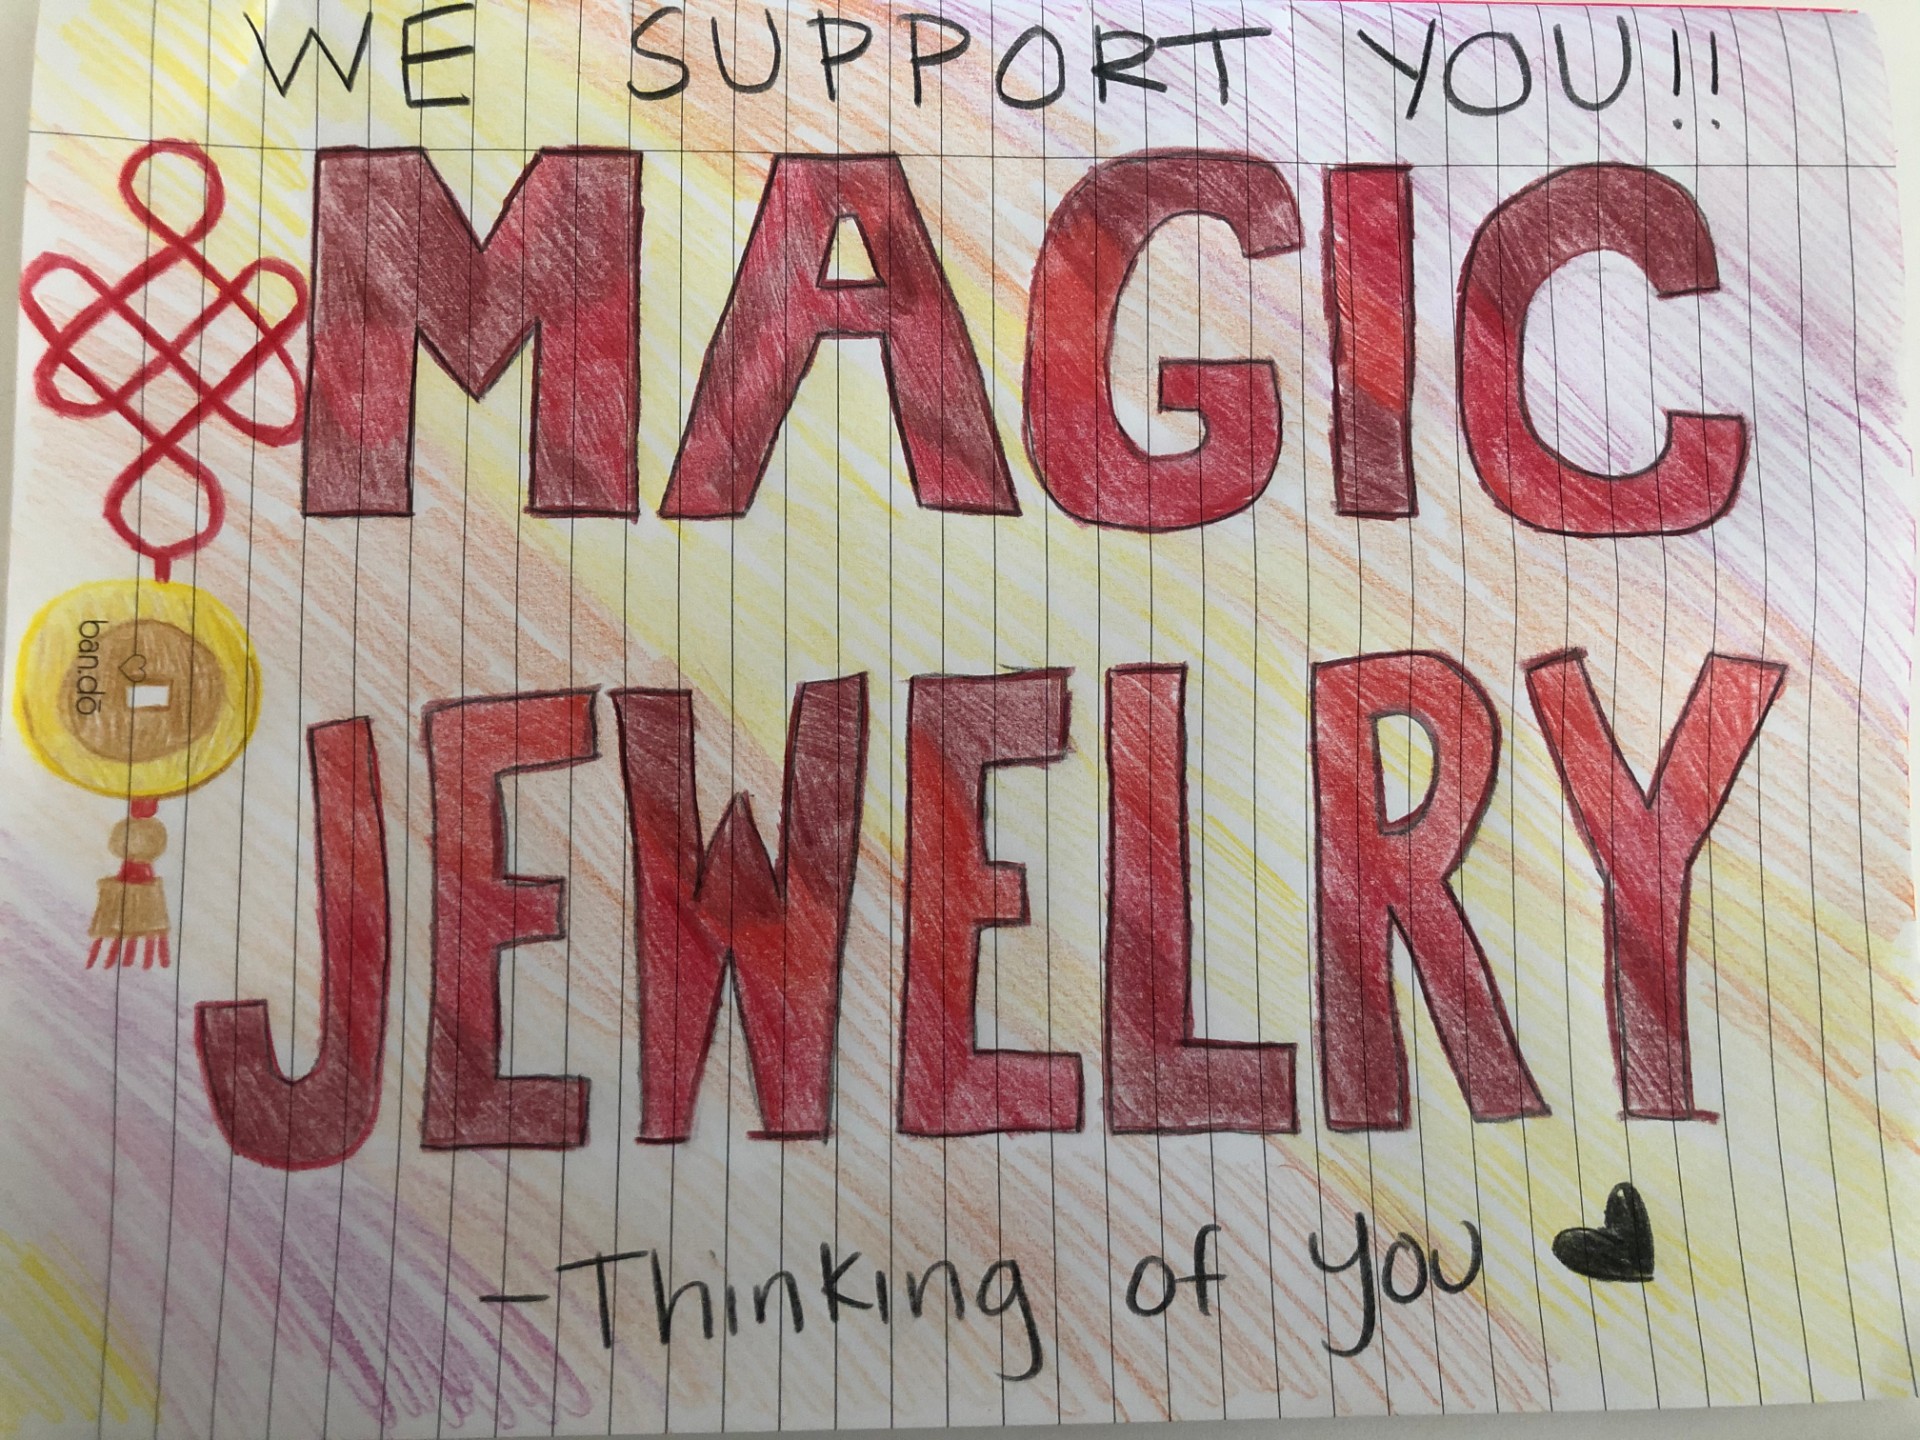 WE SUPPORT YOU!!
MAGIC
JEWELRY
ban.dō
-Thinking of you